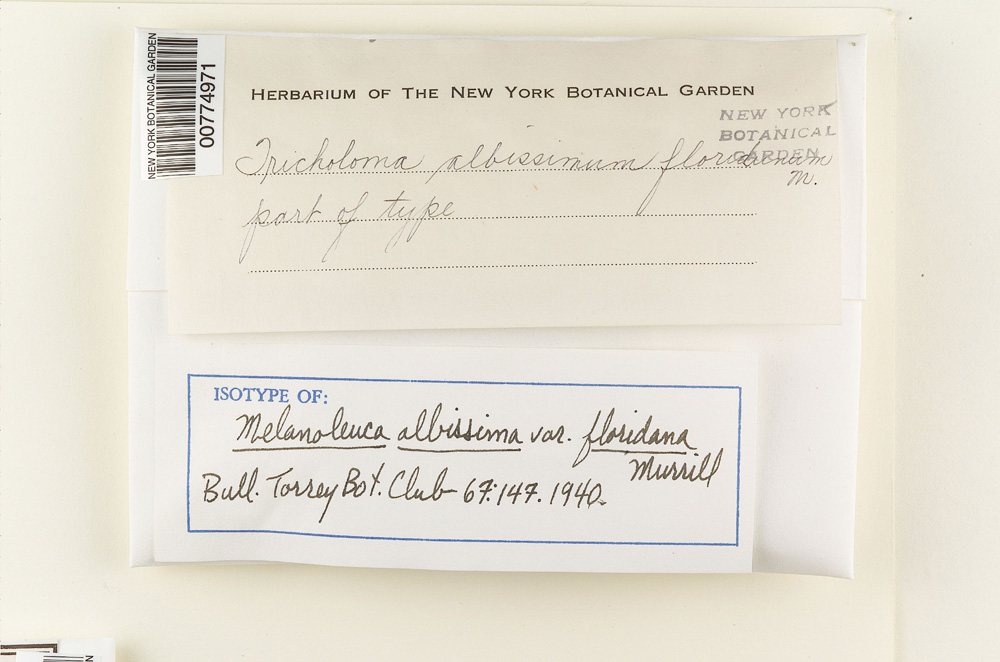 NEW YORK BOTANICAL GARDEN
00774971
HERBARIUM OF THE NEW YORK BOTANICAL GARDEN
NEW YORK
BOTANICAL
GARDEN
Tricholoma albissimum floridanum
M.
part of type
ISOTYPE OF:
Melanoleuca albissima var. floridana
Murrill
Bull. Torrey Bot. Club 67:147. 1940.
N